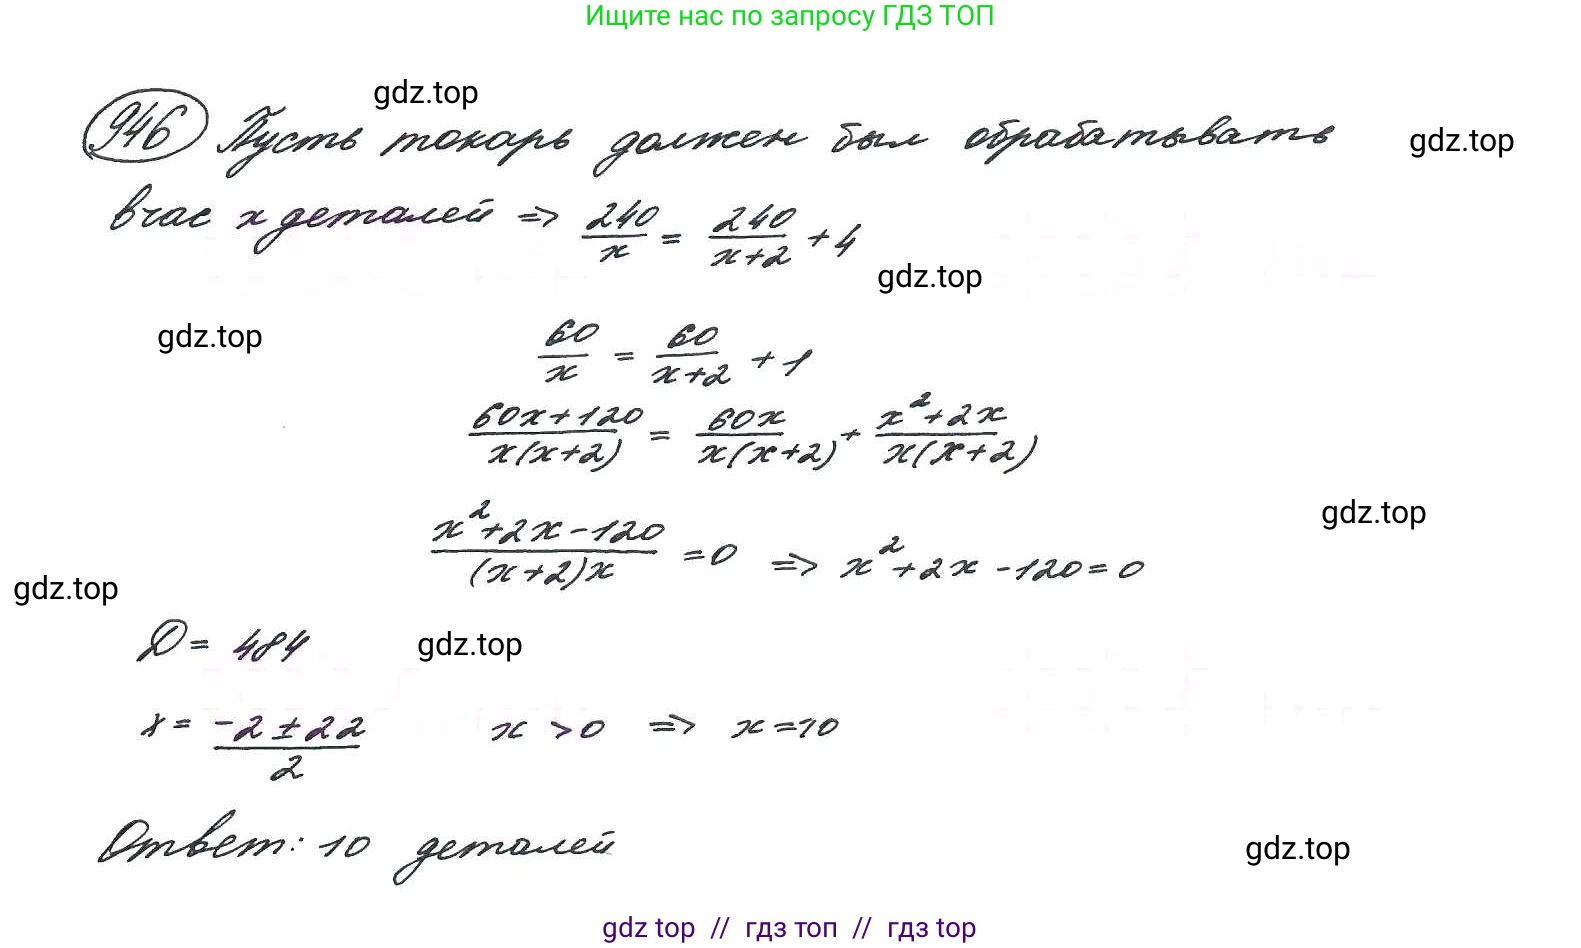 Ищите нас по запросу ГДЗ ТОП
gdz.top
946 Пусть токарь должен был обрабатывать
gdz.top
в час x деталей => 240/x = 240/(x+2) + 4
gdz.top
gdz.top
60/x = 60/(x+2) + 1
(60x+120)/(x(x+2)) = 60x/(x(x+2)) + (x²+2x)/(x(x+2))
gdz.top
(x²+2x-120)/((x+2)x) = 0 => x²+2x-120=0
gdz.top
D = 484
gdz.top
x = (-2±22)/2 x > 0 => x=10
Ответ: 10 деталей
gdz.top
gdz top // гдз топ // гдз top